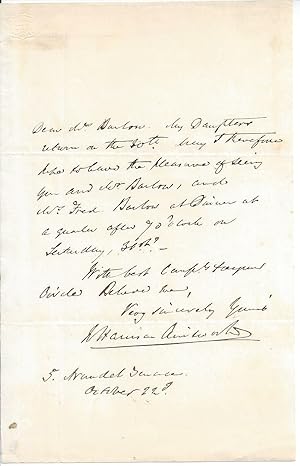 Dear Mr. Barlow. My Daughters
return on the 30th. May I therefore
hope to have the pleasure of seeing
you and Mr. Barlow, and
Mr. Fred. Barlow at Dinner at
a quarter after 7 o'clock on
Saturday, 30th?-
With best Compts to your
Circle Believe me,
Very sincerely Yours
W Harrison Ainsworth
5. Arundel Terrace.
October 22d.